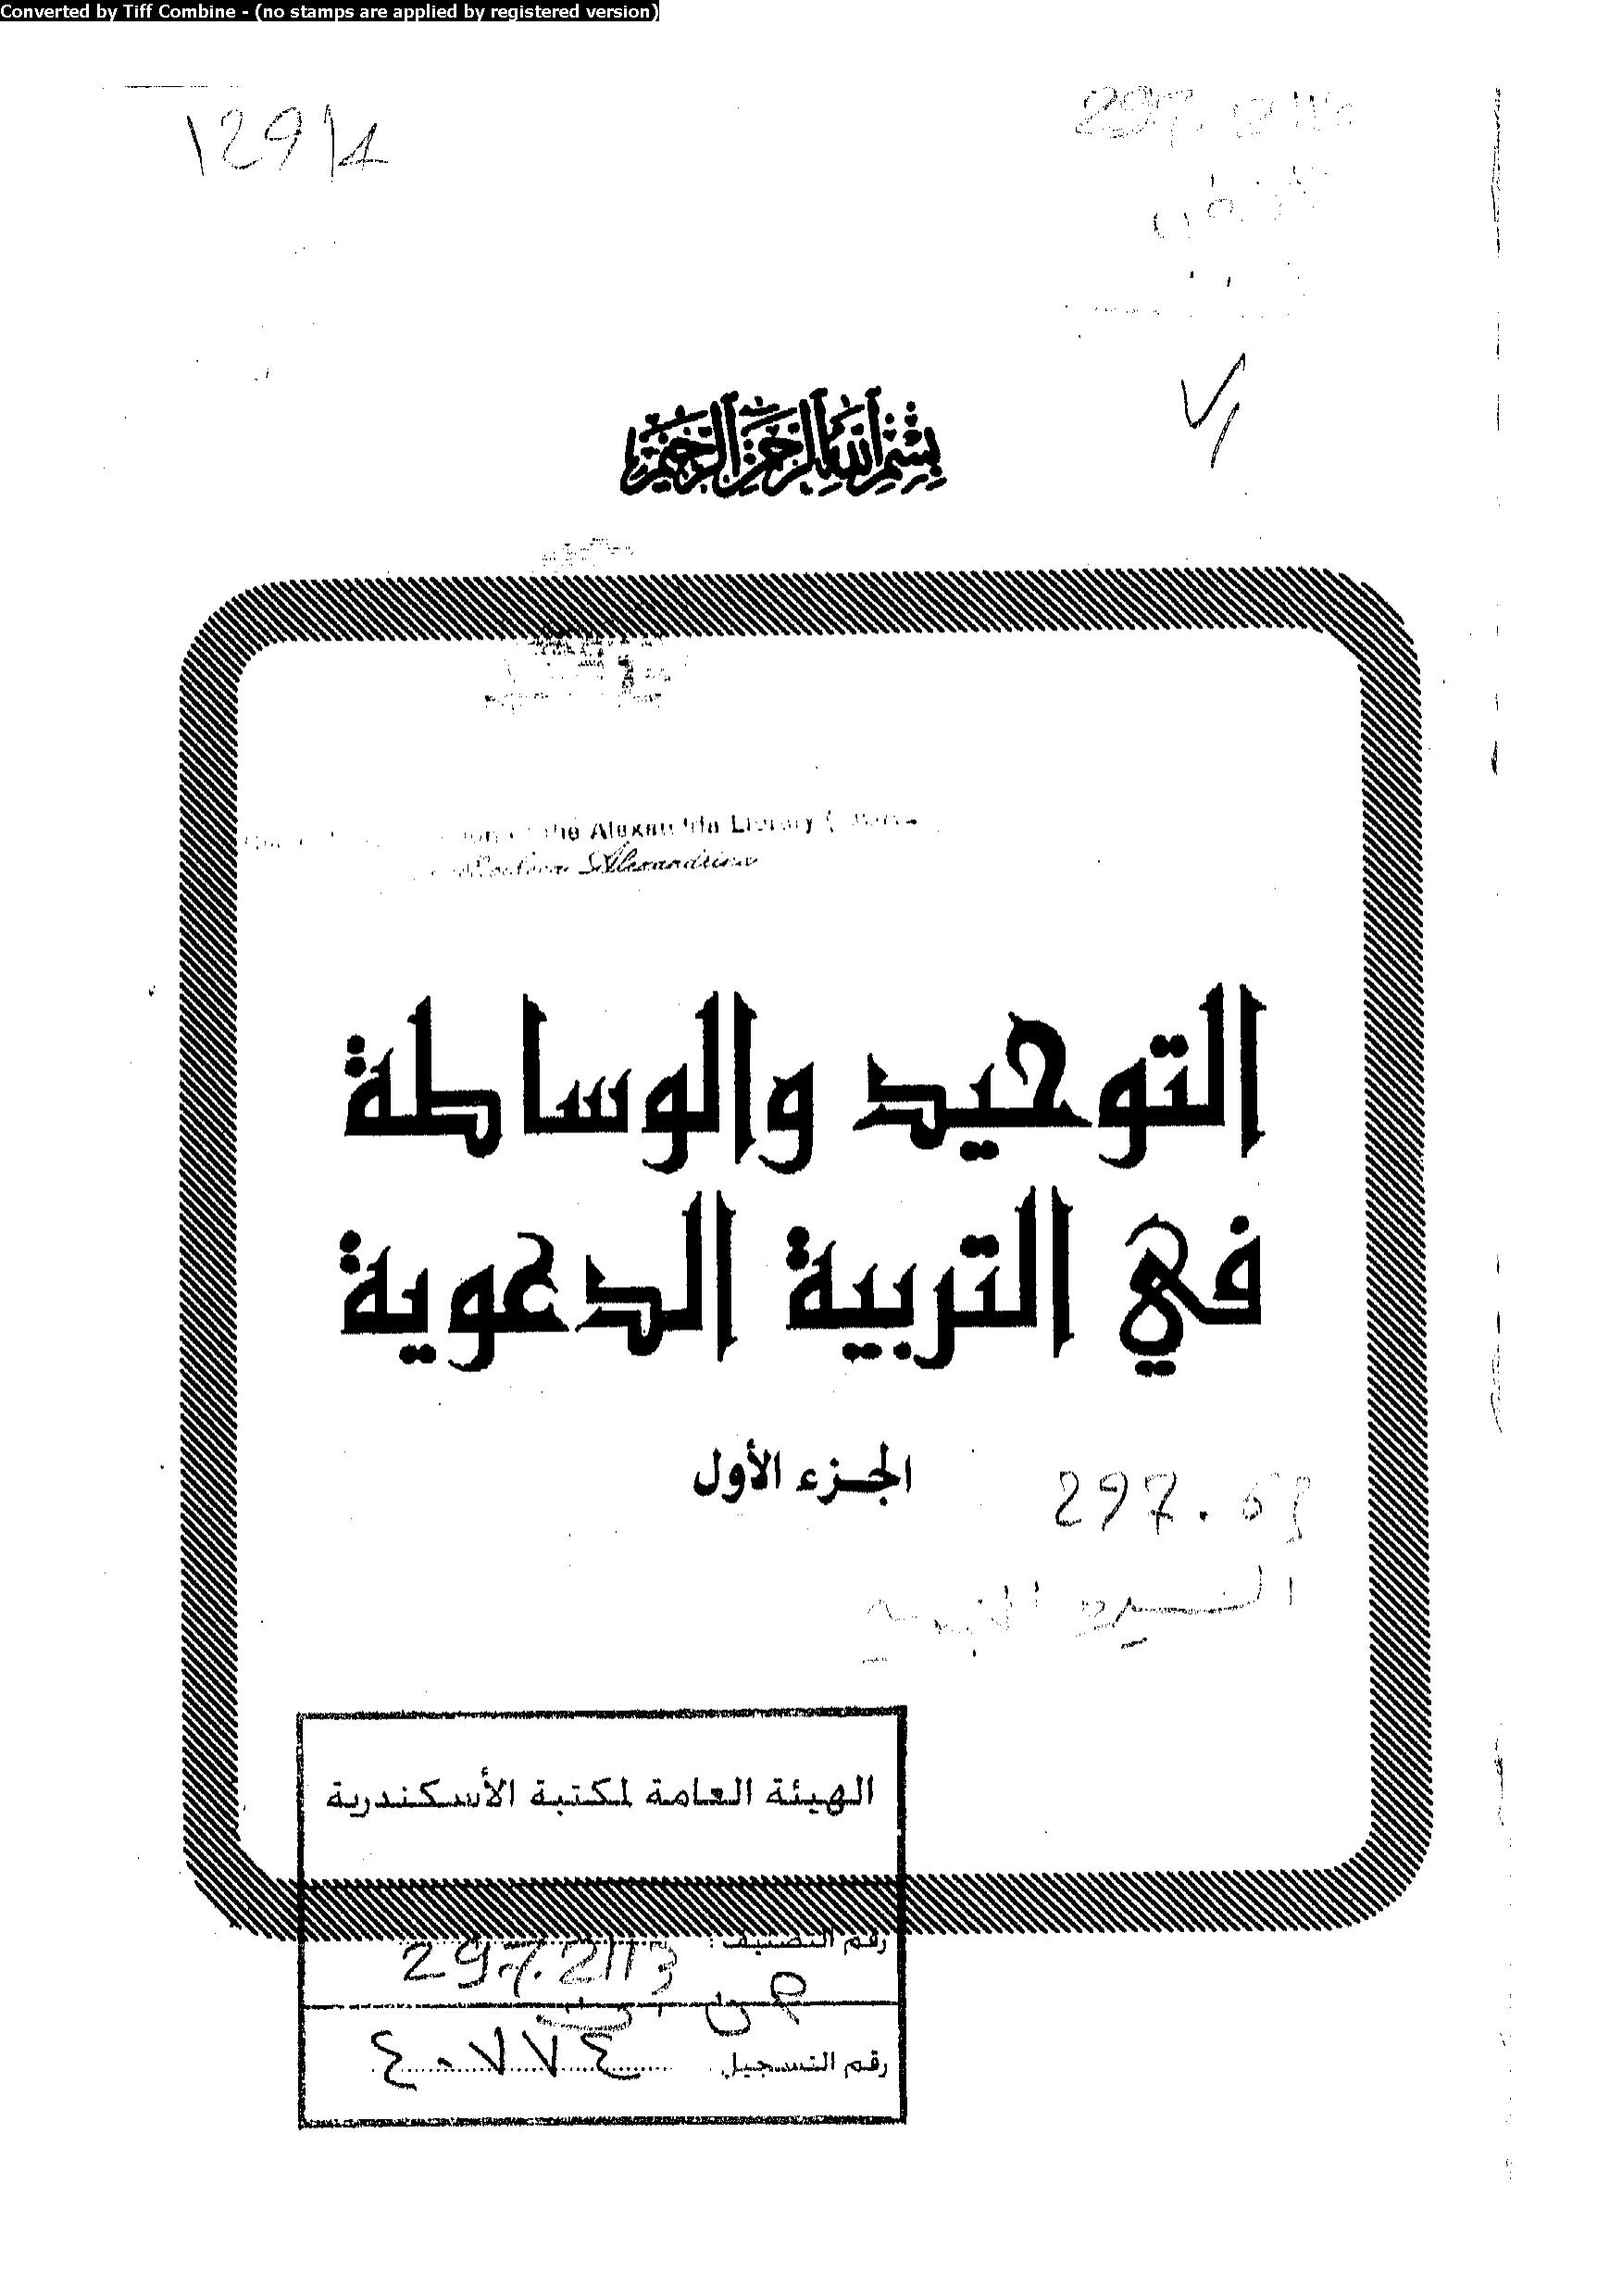 Converted by Tiff Combine - (no stamps are applied by registered version)
12914
297.
بسم الله الرحمن الرحيم
the Alexandria Library
Alexandrina
التوحيد والوساطة
في التربية الدعوية
الجزء الأول
297.63
الهيئة العامة لمكتبة الأسكندرية
رقم التصنيف: 297.2113
رقم التسجيل ٤٠٧٧٤